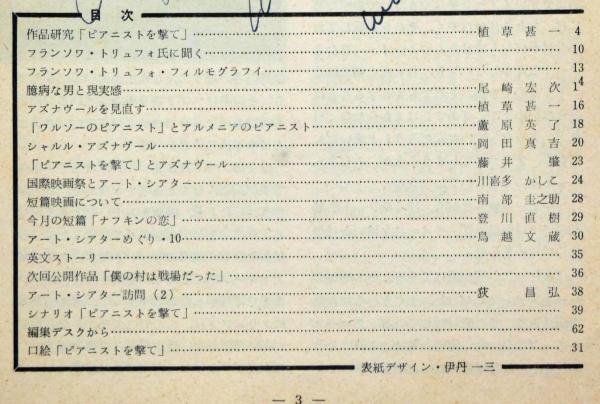 目次
作品研究「ピアニストを撃て」 植草甚一 4
フランソワ・トリュフォ氏に聞く 10
フランソワ・トリュフォ・フィルモグラフイ 13
臆病な男と現実感 尾崎宏次 14
アズナヴールを見直す 植草甚一 16
「ワルソーのピアニスト」とアルメニアのピアニスト 蘆原英了 18
シャルル・アズナヴール 岡田真吉 20
「ピアニストを撃て」とアズナヴール 藤井肇 23
国際映画祭とアート・シアター 川喜多かしこ 24
短篇映画について 南部圭之助 28
今月の短篇「ナフキンの恋」 登川直樹 29
アート・シアターめぐり・10 鳥越文蔵 30
英文ストーリー 35
次回公開作品「僕の村は戦場だった」 36
アート・シアター訪問(2) 荻昌弘 38
シナリオ「ピアニストを撃て」 39
編集デスクから 62
口絵「ピアニストを撃て」 31
表紙デザイン・伊丹一三
— 3 —